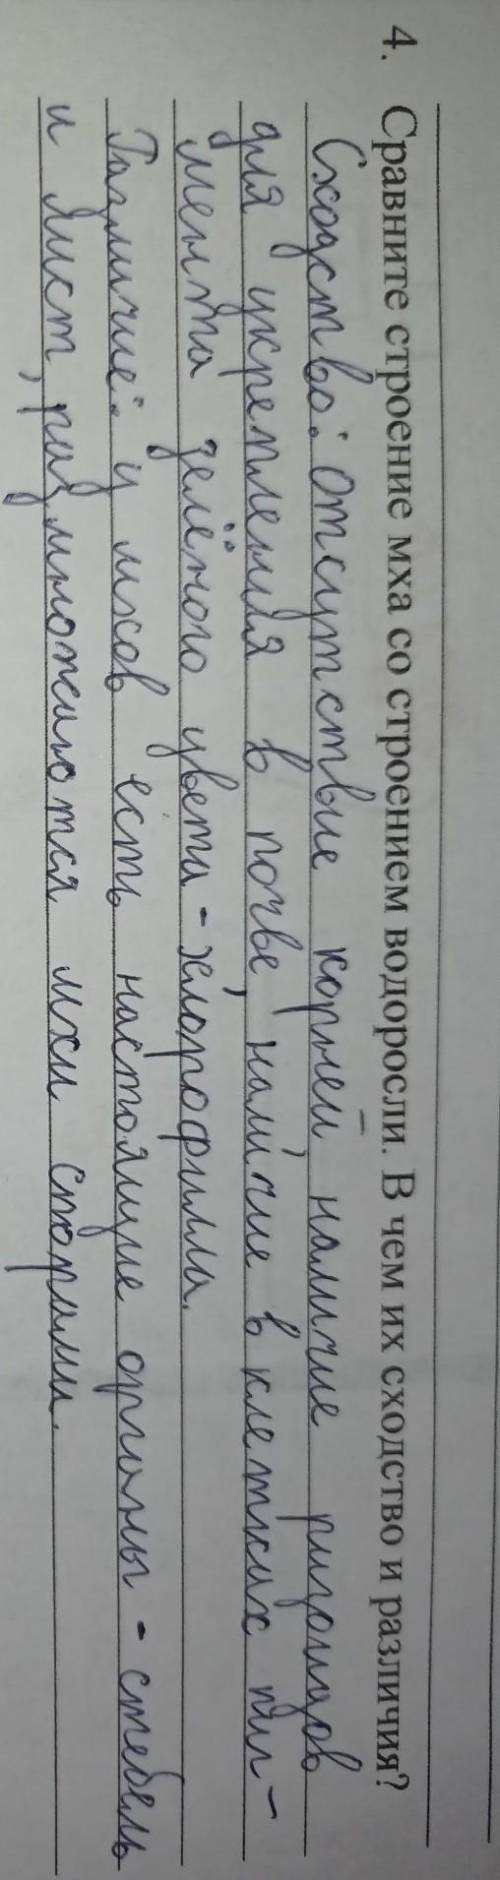 4. Сравните строение мха со строением водоросли. В чем их сходство и различия?
Сходство: отсутствие корней наличие ризоидов
для укрепления в почве, наличие в клетках пиг-
мента зелёного цвета - хлорофилла.
Различие: у мхов есть настоящие органы - стебель
и лист, размножаются мхи спорами.